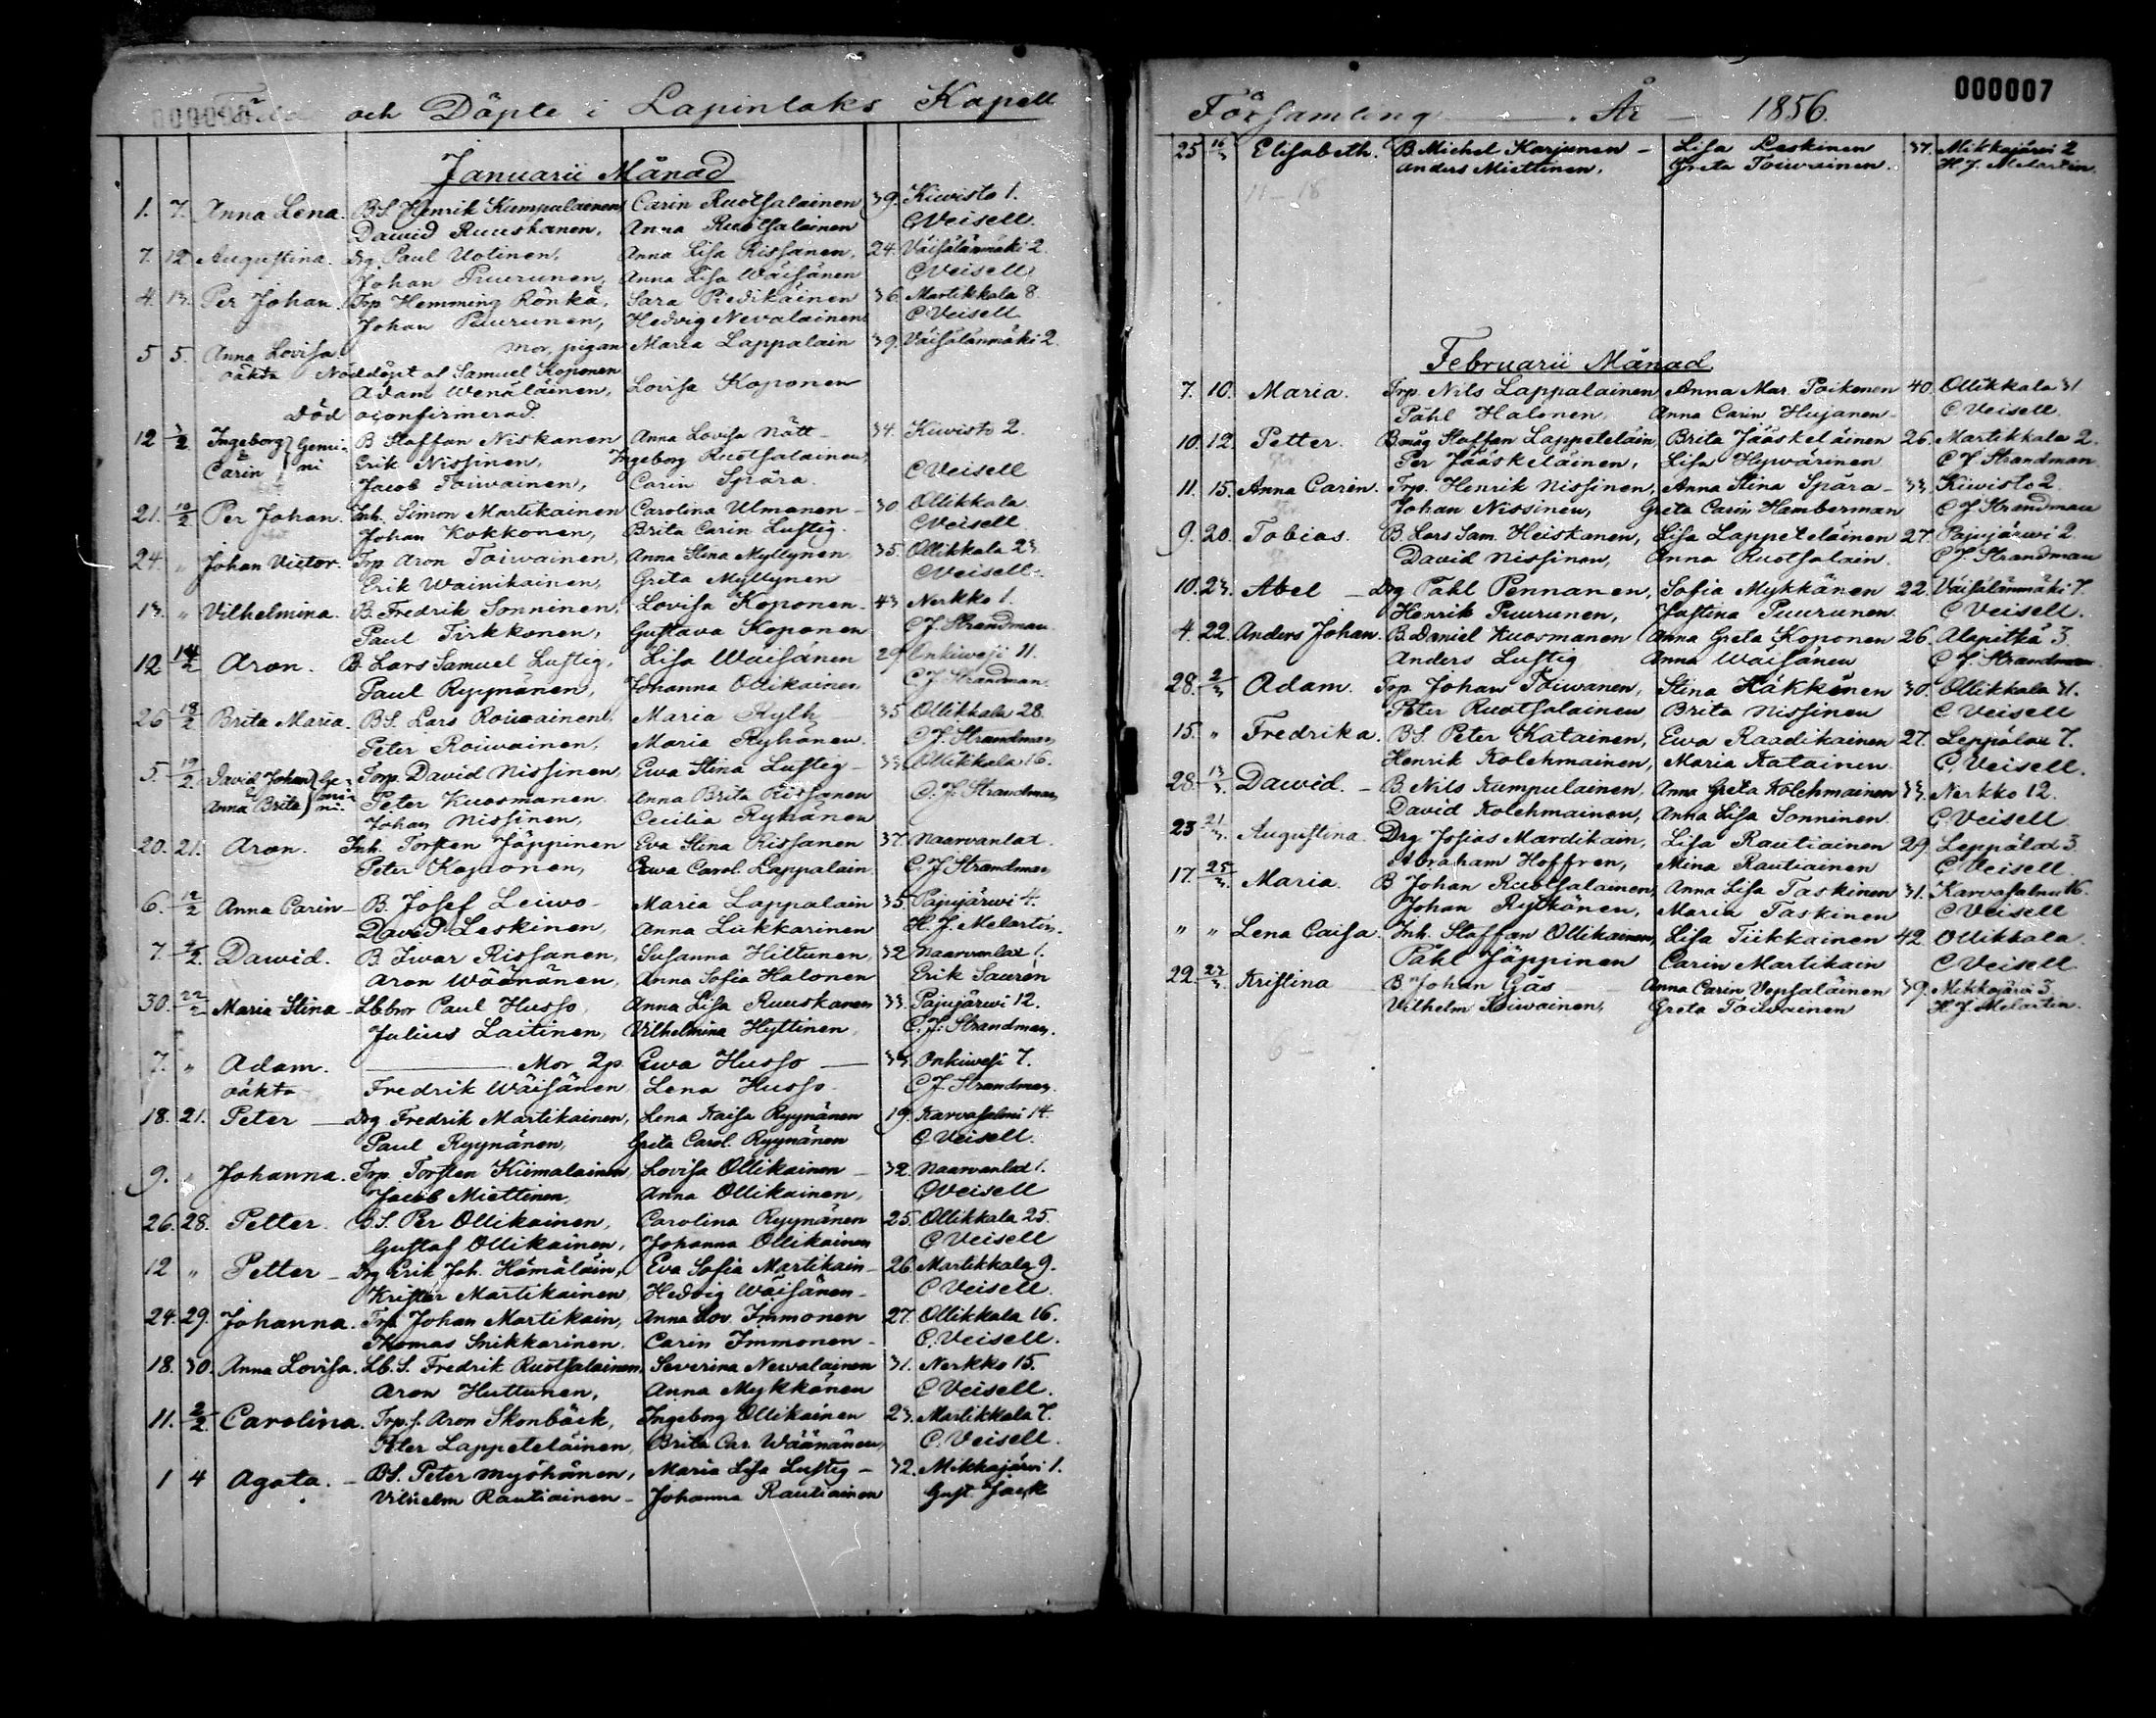 Födde och Döpte i Lapinlaks Kapell
Januarii Månad
1. 7. Anna Lena. BS. Henrik Kumpulainen, Carin Ruotsalainen 39. Kiwisto 1.
Dawid Ruuskanen, Anna Ruotsalainen C Veisell.
7. 12 Augustina. Drg Paul Uotinen, Anna Lisa Rissanen, 24. Väisälänmäki 2.
Johan Puurunen, Anna Lisa Wäisänen C Veisell
4. 13. Per Johan. Trp Hemming Rönkä, Sara Pedikäinen 36. Martikkala 8.
Johan Puurunen, Hedvig Nevalainen C Veisell
5 5. Anna Lovisa. mor, pigan Maria Lappalain 39. Väisälänmäki 2.
oäkta Nöddöpt af Samuel Koponen
Adam Wenäläinen, Lovisa Koponen
Död oconfirmerad.
12 3/2. Ingeborg & Carin Gemini B Staffan Niskanen Anna Lovisa Nätt 34. Kiwisto 2.
Erik Nissinen, Ingeborg Ruotsalainen,
Jacob Toiwainen, Carin Spära. C Veisell
21. 10/2 Per Johan. Inh. Simon Martikainen Carolina Ulmanen 30. Ollikkala
Johan Kokkonen, Brita Carin Lustig. C Veisell
24. " Johan Victor. Trp Aron Toiwainen, Anna Stina Myllynen 35. Ollikkala 23
Erik Wainikainen, Greta Myllynen C Veisell.
13. " Vilhelmina. B. Fredrik Sonninen, Lovisa Koponen 43 Nerkko 1.
Paul Tirkkonen, Gustava Koponen C J. Strandman
12. 14/2 Aron. B. Lars Samuel Lustig, Lisa Wäisänen 29 Onkiwesi 11.
Paul Ryynänen, Johanna Ollikainen C. J. Strandman.
26 18/2 Brita Maria. BS. Lars Roiwainen, Maria Kylh 35 Ollikkala 28.
Peter Roiwainen, Maria Ryhänen. C. J. Strandman
5. 19/2. David Johan & Anna Brita Gemini. Torp. David Nissinen, Ewa Stina Lusteg 33 Ollikkala 16.
Peter Kuosmanen. Anna Brita Rissanen C. J. Strandman,
Johan Nissinen, Cecilia Ryhänen
20. 21. Aron. Inh. Torsten Jäppinen Eva Stina Rissanen 37. Naarvanlax.
Peter Koponen, Ewa Carol. Lappalain. C. J. Strandman,
6. 12/2 Anna Carin B. Josef Leiwo Maria Lappalain 35 Pajujärwi 4.
David Leskinen, Anna Lukkarinen H. J. Melartin.
7. 4/2. Dawid. B. Iwar Rissanen, Susanna Hiltunen, 32 Naarvanlax 1.
Aron Wäänänen, Anna Sofia Halonen Erik Sauren
30. 22/2 Maria Stina Lbbror Paul Husso, Anna Lisa Ruuskanen 33. Pajujärwi 12.
Julius Laitinen, Vilhelmina Hyttinen, C. J. Strandman.
7. " Adam. Mor 2p Ewa Husso 33 Onkiwesi 7.
oäkta Fredrik Wäisänen Lena Husso C J. Strandman.
18. 21. Peter Drg Fredrik Martikainen, Lena Kaisa Ryynänen 19. Karvasalmi 14.
Paul Ryynänen, Greta Carol. Ryynänen C Veisell.
9. " Johanna. Trp. Torsten Kumalainen Lovisa Ollikainen 32. Naarvanlax 1.
Jacob Miettinen, Anna Ollikainen, C Veisell
26. 28. Petter. BS. Per Ollikainen, Carolina Ryynänen 25. Ollikkala 25.
Gustaf Ollikainen, Johanna Ollikainen C Veisell
12 " Petter Drg Erik Joh. Hämäläin, Eva Sofia Martikain 26. Martikkala 9.
Krister Martikainen, Hedvig Wäisänen C Veisell.
24. 29. Johanna. Trp. Johan Martikain, Anna Lov. Immonen 27. Ollikkala 16.
Thomas Snikkarinen. Carin Immonen C. Veisell.
18. 30. Anna Lovisa. Lb. S. Fredrik Ruotsalainen, Severina Newalainen 31. Nerkko 15.
Aron Huttunen, Anna Mykkänen C Veisell.
11. 2/2. Carolina. Trp. s. Aron Skonbäck, Ingeborg Ollikainen 23. Martikkala 7.
Peter Lappeteläinen, Brita Car. Wäänänen, C. Veisell.
1 4 Agata. BS. Peter Myöhänen, Maria Lisa Lustig 32. Mikkajärwi 1.
Vilhelm Rautiainen Johanna Rautiainen Gust. Jack
000007
Församling År 1856.
25 16/3 Elisabeth. B. Michel Karjunen Lisa Leskinen 37. Mikkajärwi 2
Anders Miettinen, Greta Toiwainen. H. J. Melartin.
11-18
Februarii Månad
7. 10. Maria. Trp. Nils Lappalainen Anna Mar. Poikonen 40. Ollikkala 31
Påhl Halonen, Anna Carin Hujanen C Veisell.
10. 12. Petter. B.måg Staffan Lappeteläin, Brita Jääskeläinen 26. Martikkala 2.
Per Jääskeläinen, Lisa Hywärinen C J. Strandman.
11. 15. Anna Carin. Trp. Henrik Nissinen, Anna Stina Spära 33. Kiwisto 2
Johan Nissinen, Greta Carin Hamberman C J Strandman
9. 20. Tobias. B. Lars Sam. Heiskanen, Lisa Lappeteläinen 27. Pajujärwi 2.
David Nissinen, Anna Ruotsalain. C J. Strandman
10. 23. Abel Drg Påhl Pennanen, Sofia Mykkänen 22. Väisälänmäki 7.
Henrik Puurunen, Justina Puurunen C Veisell.
4. 22. Anders Johan. B. Daniel Kuosmanen Anna Greta Koponen 26. Alapitkä 3.
Anders Lustig Anna Wäisänen C J. Strandman
28. 2/3 Adam. Trp. Johan Toiwanen, Stina Häkkänen 30. Ollikkala 31.
Peter Ruotsalainen Brita Nissinen C Veisell
15. " Fredrika. BS. Peter Katainen, Ewa Raadikainen 27. Leppälax 7.
Henrik Kolehmainen, Maria Katainen. C. Veisell.
28. 13/3. Dawid. B. Nils Kumpulainen, Anna Greta Kolehmainen 33. Nerkko 12.
David Kolehmainen, Anna Lisa Sonninen. C. Veisell
23 21/3. Augustina. Drg Josias Mardikain, Lisa Rautiainen 29. Leppälax 3.
Abraham Hoffren, Mina Rautiainen C Veisell
17. 25/3. Maria. B Johan Ruotsalainen, Anna Lisa Taskinen 31. Karvasalmi 16.
Johan Rytkönen, Maria Taskinen C Veisell
" " Lena Caisa. Inh. Staffan Ollikainen, Lisa Tiikkainen 42. Ollikkala.
Påhl Jäppinen Carin Martikain C Veisell
29. 27/3. Kristina B Johan Gås Anna Carin Vepsäläinen 39. Mikkajärwi 3.
Vilhelm Koiwainen, Greta Toiwainen H. J. Melartin.